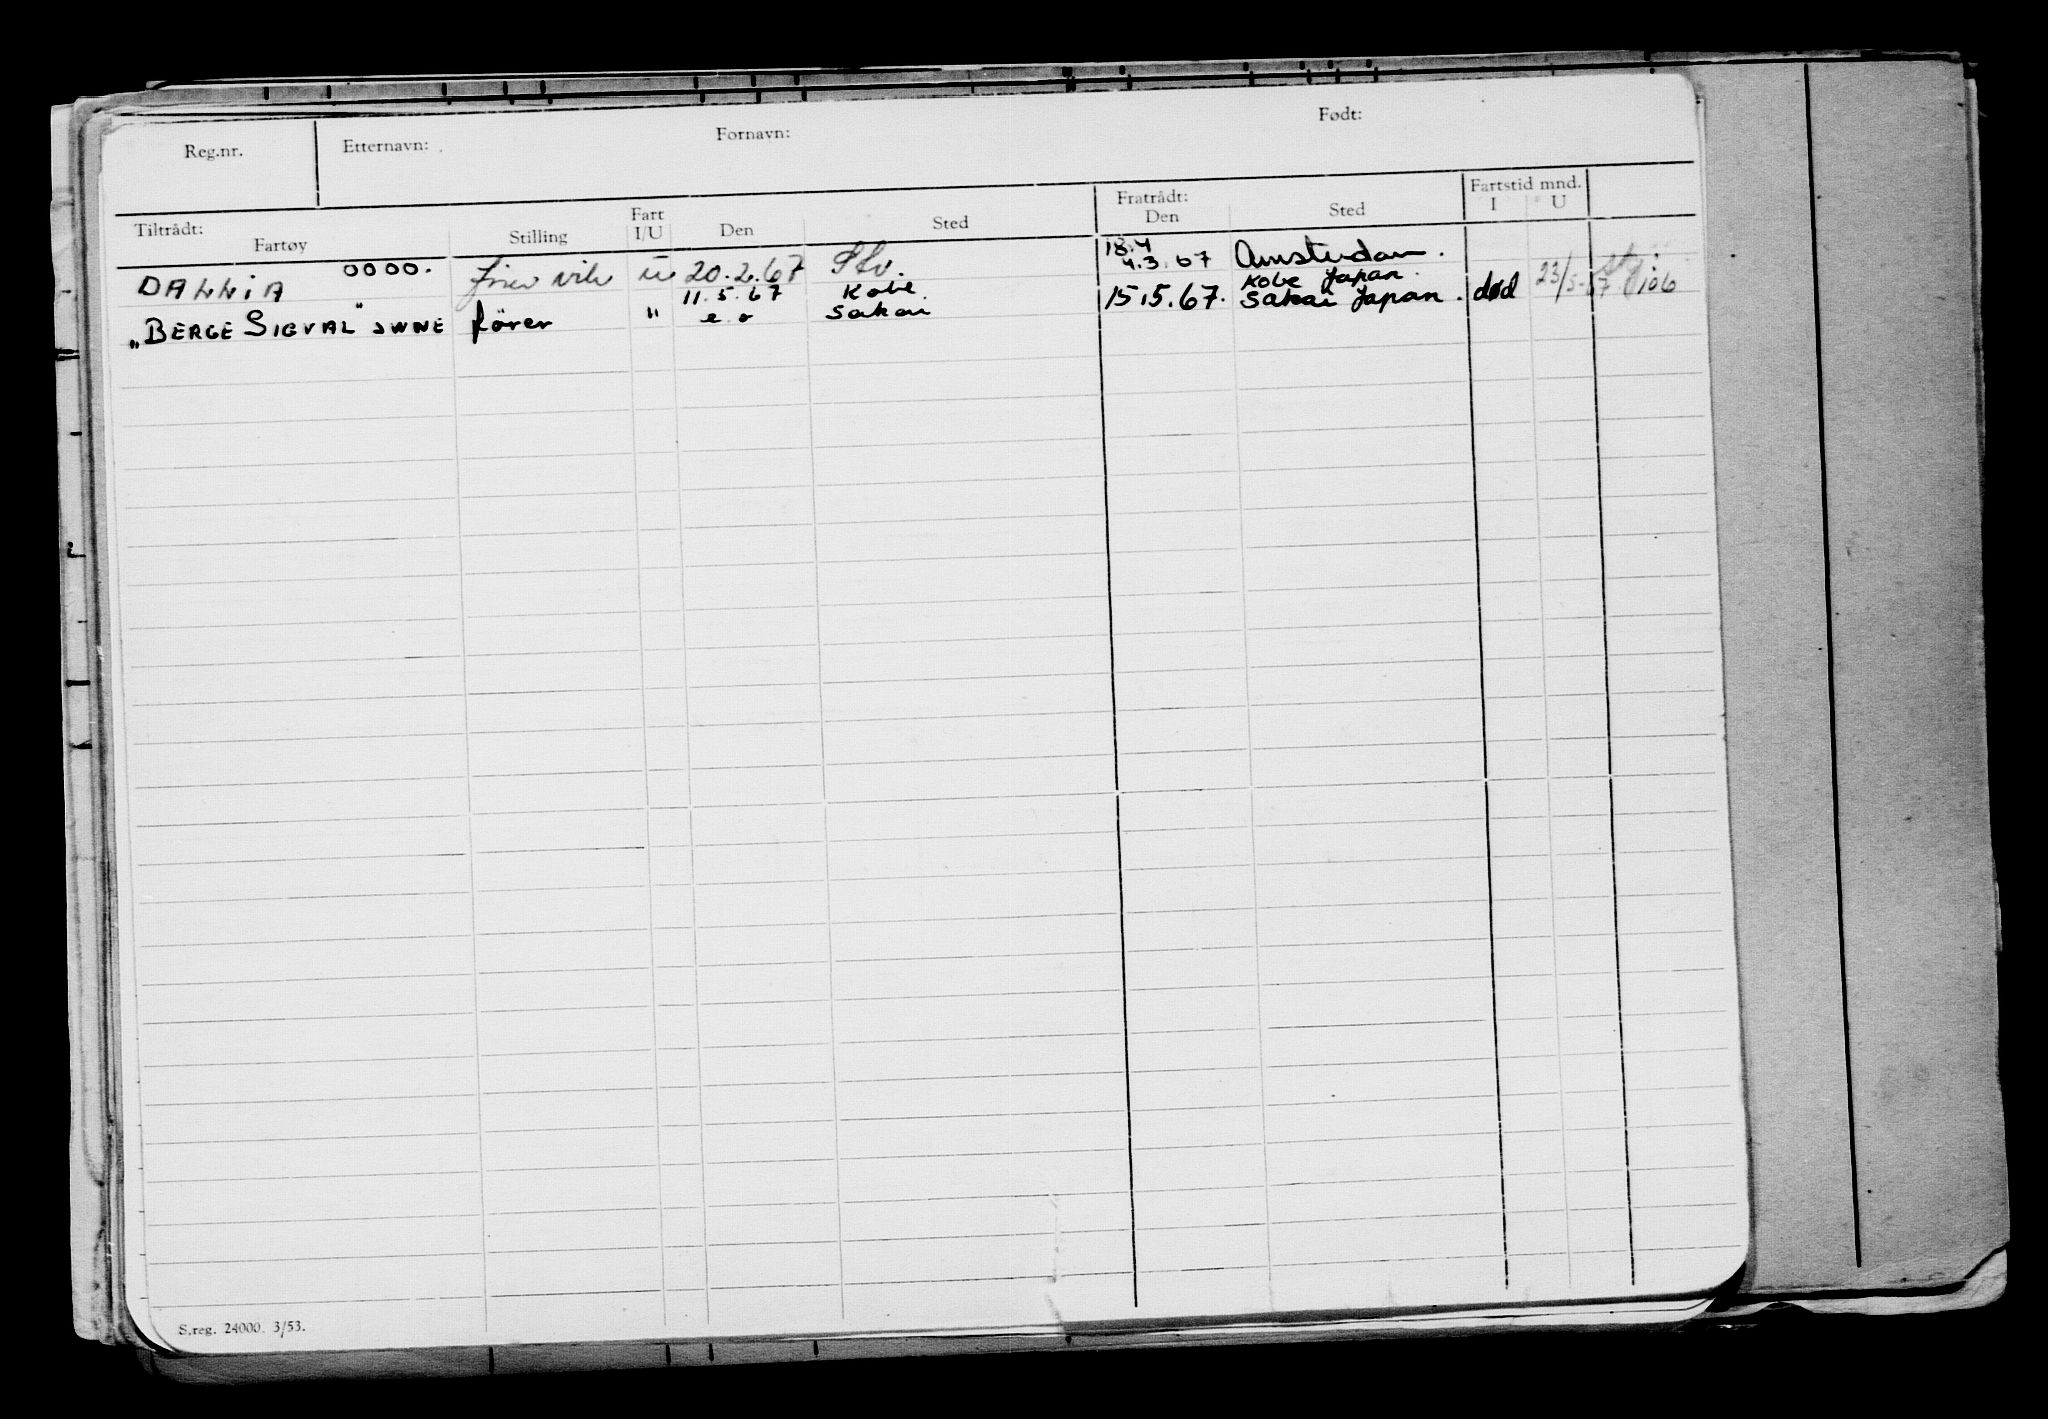 Reg.nr. Etternavn: Fornavn: Født:
Tiltrådt: Fartøy Stilling Fart I/U Den Sted Fratrådt: Den Sted Fartstid mnd. I U
18.4
DAHLIA 0000. u 20.2.67 Stv. 4.3.67 Amsterdam.
11.5.67 Kobe. Kobe Japan.
"BERGE SIGVAL" JWNE förer " e.o Sakai 15.5.67. Sakai Japan. død 23/5-67 106
S.reg. 24000. 3/53.